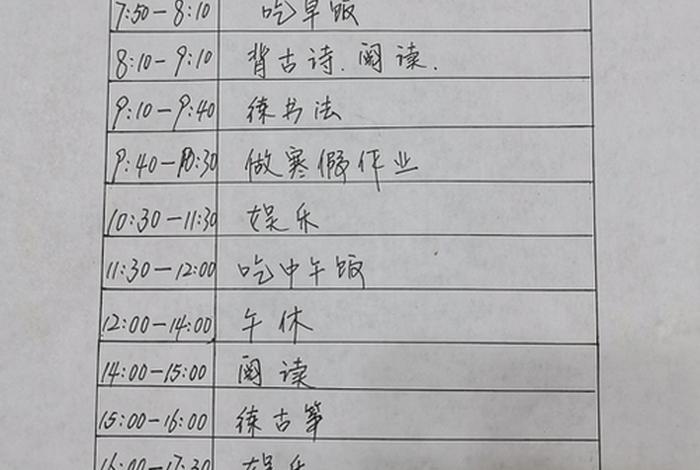 7:50-8:10 吃早饭
8:10-9:10 背古诗.阅读.
9:10-9:40 练书法
9:40-10:30 做寒假作业
10:30-11:30 娱乐
11:30-12:00 吃中午饭
12:00-14:00 午休
14:00-15:00 阅读
15:00-16:00 练古筝
16:00-17:30 娱乐